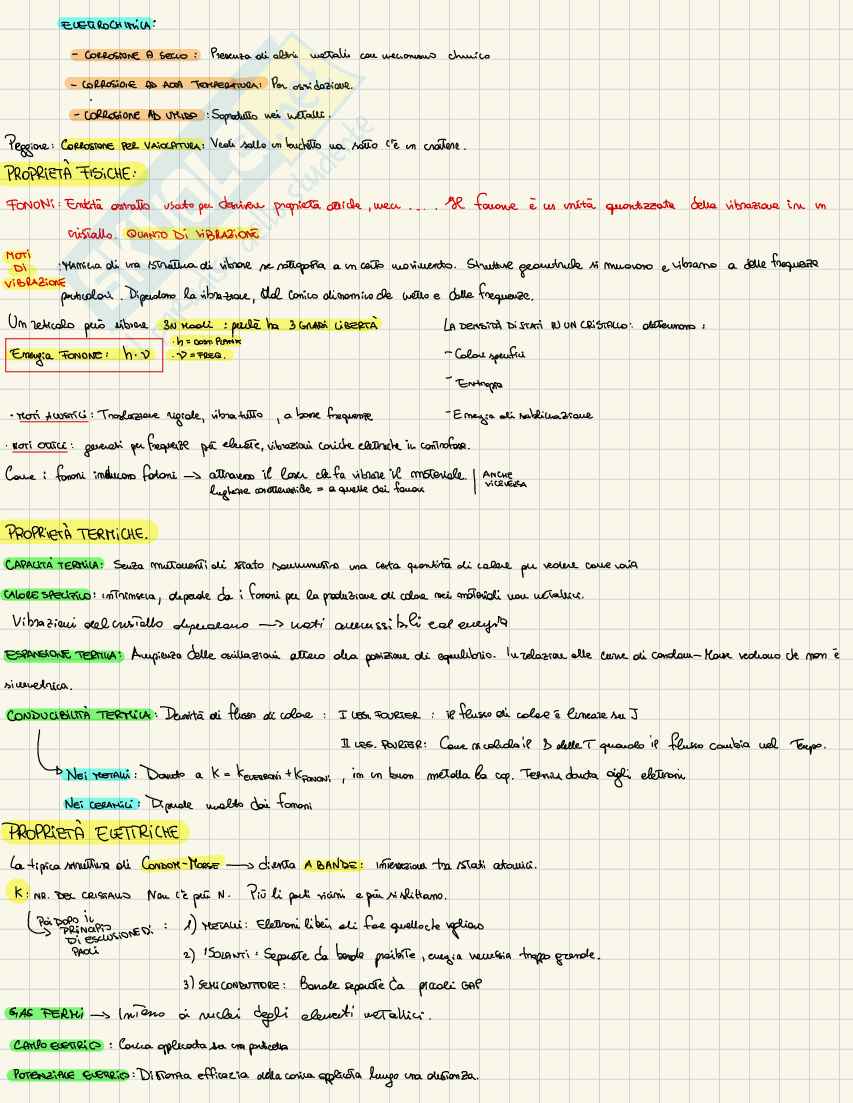 ELETTROCHIMICA:
- CORROSIONE A SECCO: Presenza di altri metalli con meccanismo chimico
- CORROSIONE AD ALTA TEMPERATURA: Per ossidazione.
- CORROSIONE AD UMIDO: Soprattutto nei metalli.
Peggiore: CORROSIONE PER VAIOLATURA: Vedi sotto un buchetto ma sotto c'è un cratere.
PROPRIETÀ FISICHE:
FONONI: Entità astratta usata per descrivere proprietà ottiche, mecc .... Il fonone è un unità quantizzata della vibrazione in un
cristallo. QUANTO DI VIBRAZIONE
MOTI DI VIBRAZIONE: di una struttura di vibrare se sottoposta a un certo movimento. Strutture geometriche si muovono e vibrano a delle frequenze
particolari. Dipendono la vibrazione, dal carico dinamico che metto e dalle frequenze.
Un reticolo può vibrare 3N modi: perchè ha 3 GRADI LIBERTÀ
LA DENSITÀ DI STATI IN UN CRISTALLO: determinano:
Energia FONONE: h·ν
· h = cost PLANCK
· ν = FREQ.
- Calore specifico
- Entropia
- Energia di sublimazione
· MOTI ACUSTICI: Traslazione rigida, vibra tutto, a basse frequenze
· MOTI OTTICI: generati per frequenze più elevate, vibrazioni cariche elettriche in controfase.
Come i fononi inducono fotoni → attraverso il laser che fa vibrare il materiale.
lunghezze caratteristiche = a quelle dei fononi
ANCHE VICEVERSA
PROPRIETÀ TERMICHE.
CAPACITÀ TERMICA: Senza mutamenti di stato somministro una certa quantità di calore per vedere come varia
CALORE SPECIFICO: intrinseca, dipende da i fononi per la produzione di calore nei materiali non metallici.
Vibrazioni del cristallo dipendono → moti accessibili ed energia
ESPANSIONE TERMICA: Ampiezza delle oscillazioni attorno alla posizione di equilibrio. In relazione alle curve di condom-Morse vediamo che non è
simmetrica.
CONDUCIBILITÀ TERMICA: Densità di flusso di calore : I LEG. FOURIER : il flusso di calore è lineare su J
II LEG. FOURIER: Come si calcola il Δ delle T quando il flusso cambia nel Tempo.
→ Nei METALLI: Dovuto a K = K ELETTRONI + K FONONI, in un buon metallo la cap. Termica dovuta agli elettroni
NEI CERAMICI: Dipende molto dai fononi
PROPRIETÀ ELETTRICHE
La tipica struttura di CONDOM-MORSE → diventa A BANDE: interazione tra stati atomici.
K: NR. DEL CRISTALLO Non c'è più N. Più li porti vicini e più si slittano.
Poi dopo il PRINCIPIO DI ESCLUSIONE DI PAOLI :
1) METALLI: Elettroni liberi di fare quello che vogliono
2) ISOLANTI: Separate da bande proibite, energia necessaria troppo grande.
3) SEMICONDUTTORE: Bande separate da piccoli GAP
GAS FERMI → Intorno ai nuclei degli elementi metallici.
CAMPO ELETTRICO: Carica applicata su una particella
POTENZIALE ELETTRICO: Di forma efficacia della carica applicata lungo una distanza.